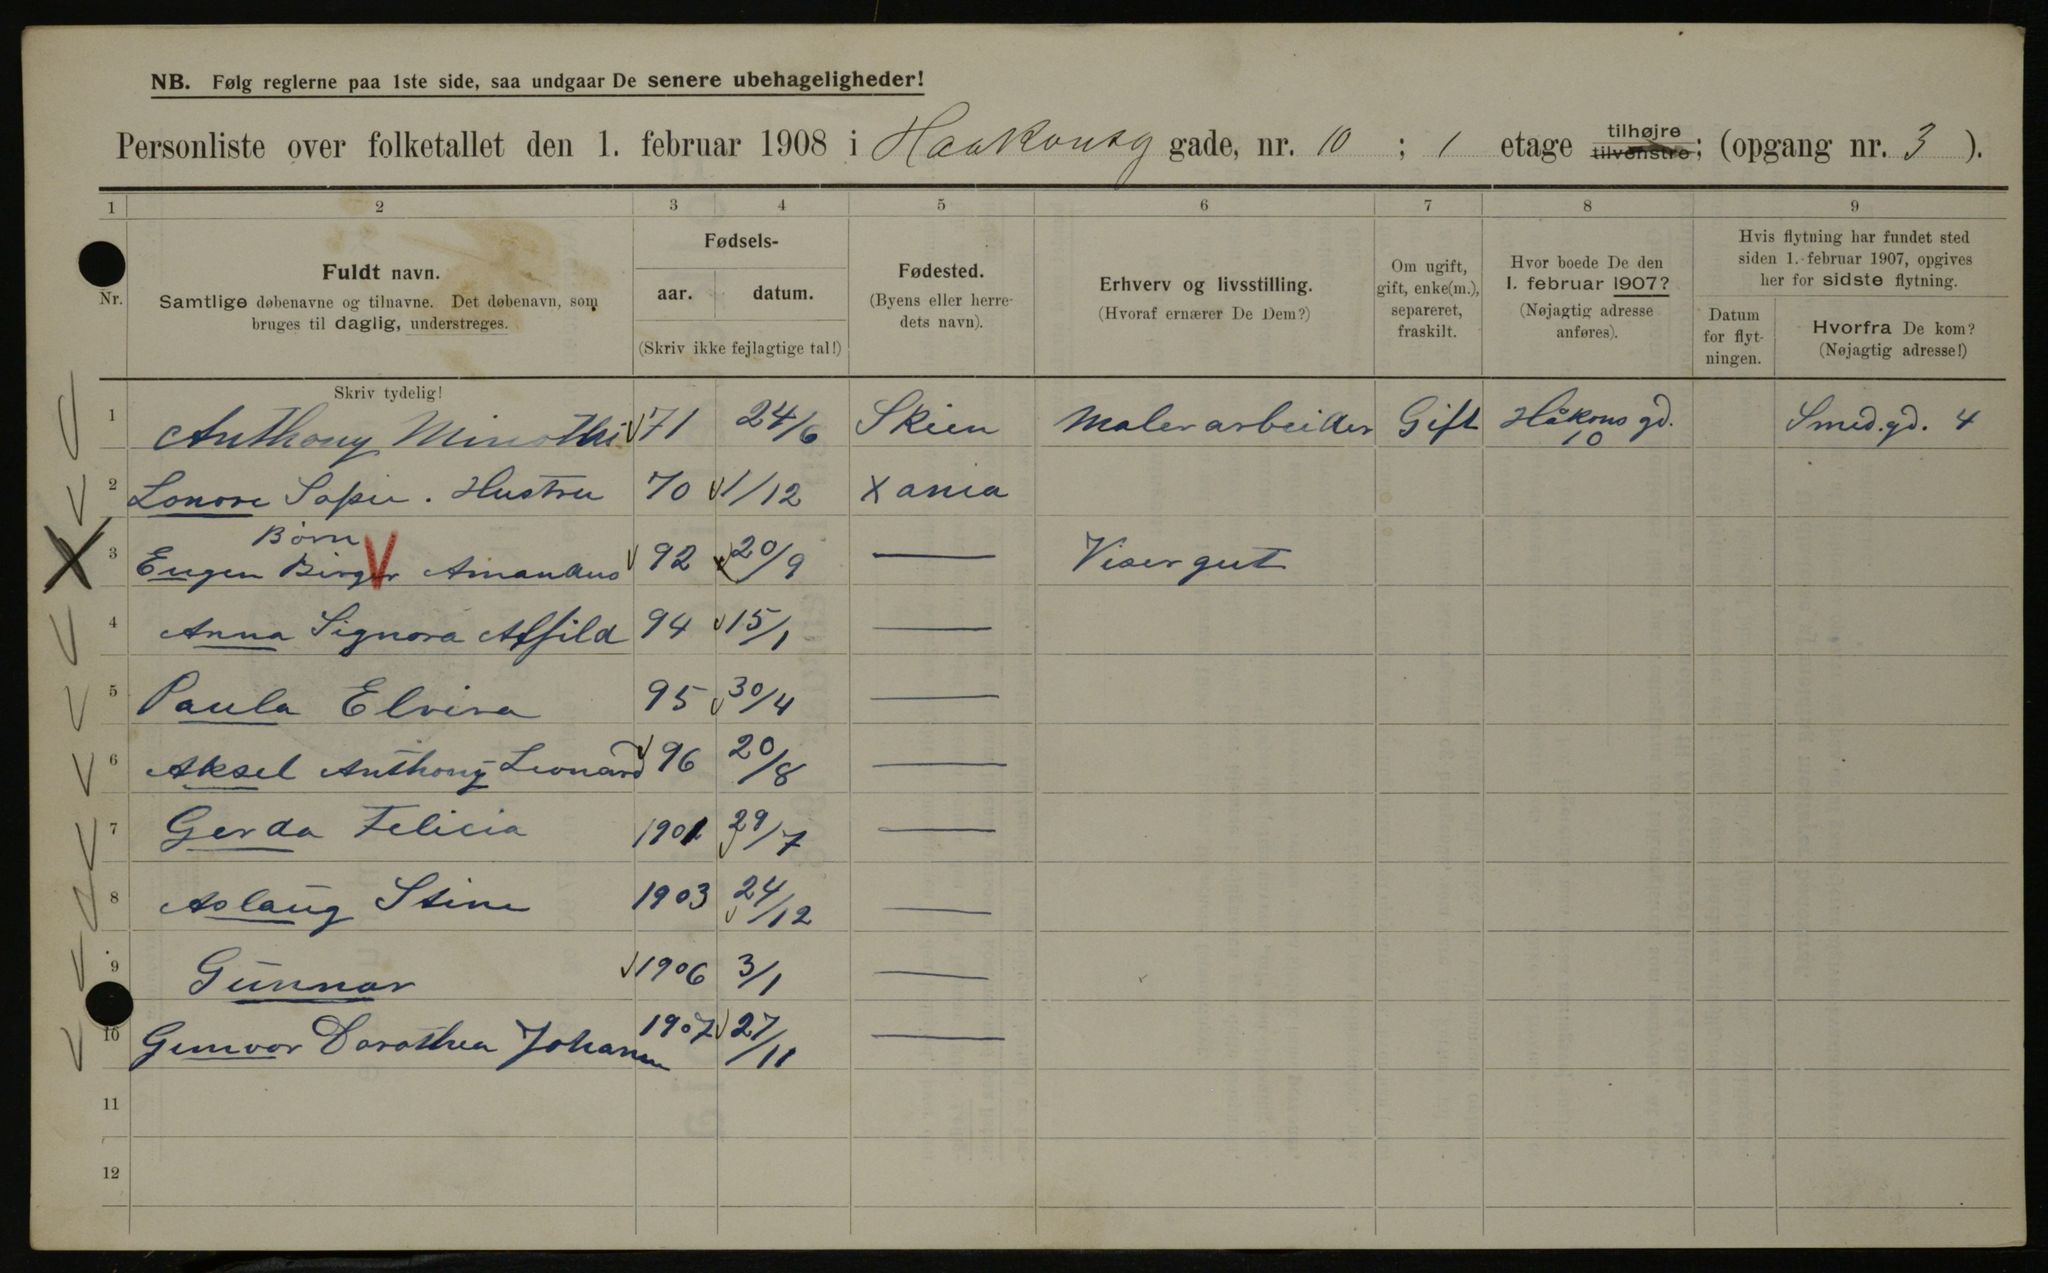 NB. Følg reglerne paa 1ste side, saa undgaar De senere ubehageligheder!
Personliste over folketallet den 1. februar 1908 i Haakonsg gade, nr. 10 ; 1 etage tilhøjre tilvenstre; (opgang nr. 3 ).
1 2 3 4 5 6 7 8 9
Nr.
Fuldt navn.
Samtlige døbenavne og tilnavne. Det døbenavn, som
bruges til daglig, understreges.
Fødsels-
aar. datum.
(Skriv ikke fejlagtige tal!)
Fødested.
(Byens eller herre-
dets navn).
Erhverv og livsstilling.
(Hvoraf ernærer De Dem?)
Om ugift,
gift, enke(m.),
separeret,
fraskilt.
Hvor boede De den
1. februar 1907?
(Nøjagtig adresse
anføres).
Hvis flytning har fundet sted
siden 1. februar 1907, opgives
her for sidste flytning.
Datum
for flyt-
ningen.
Hvorfra De kom?
(Nøjagtig adresse!)
Skriv tydelig!
1 Anthony Minothi 71 24/6 Skien Malerarbeider Gift Håkons gd. 10 Smed.gd. 4
2 Lonore Sofie . Hustru 70 1/12 Xania
Børn
3 Eugen Birger Amandus 92 20/9 — Visergut
4 Anna Signora Alfild 94 15/1 —
5 Paula Elvira 95 30/4 —
6 Aksel Anthony Leonard 96 20/8 —
7 Gerda Felicia 1901 29/7 —
8 Aslaug Stine 1903 24/12 —
9 Gunnar 1906 3/1 —
10 Gunvor Dorothea Johanne 1907 27/11 —
11
12